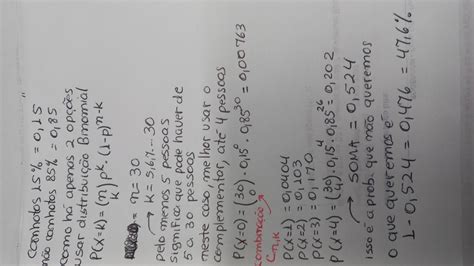 canhotos 15% = 0,15
não canhotos 85% = 0,85
como há apenas 2 opções
usar distribuição Binomial
P(x=k) = (n k) p^k . (1-p)^n-k
n = 30
→ k = 5,6,7...30
pelo menos 5 pessoas
significa que pode haver de
5 a 30 pessoas
neste caso, melhor usar o
complementar, até 4 pessoas
P(x=0) = (30 0) . 0,15^0 . 0,85^30 = 0,00763
combinação
C n,k
P(x=1) = 0,0404
P(x=2) = 0,103
P(x=3) = 0,170
P(x=4) = (30 4) . 0,15^4 . 0,85^26 = 0,202
→ SOMA = 0,524
isso é a prob. que não queremos
o que queremos é
1 - 0,524 = 0,476 = 47,6%